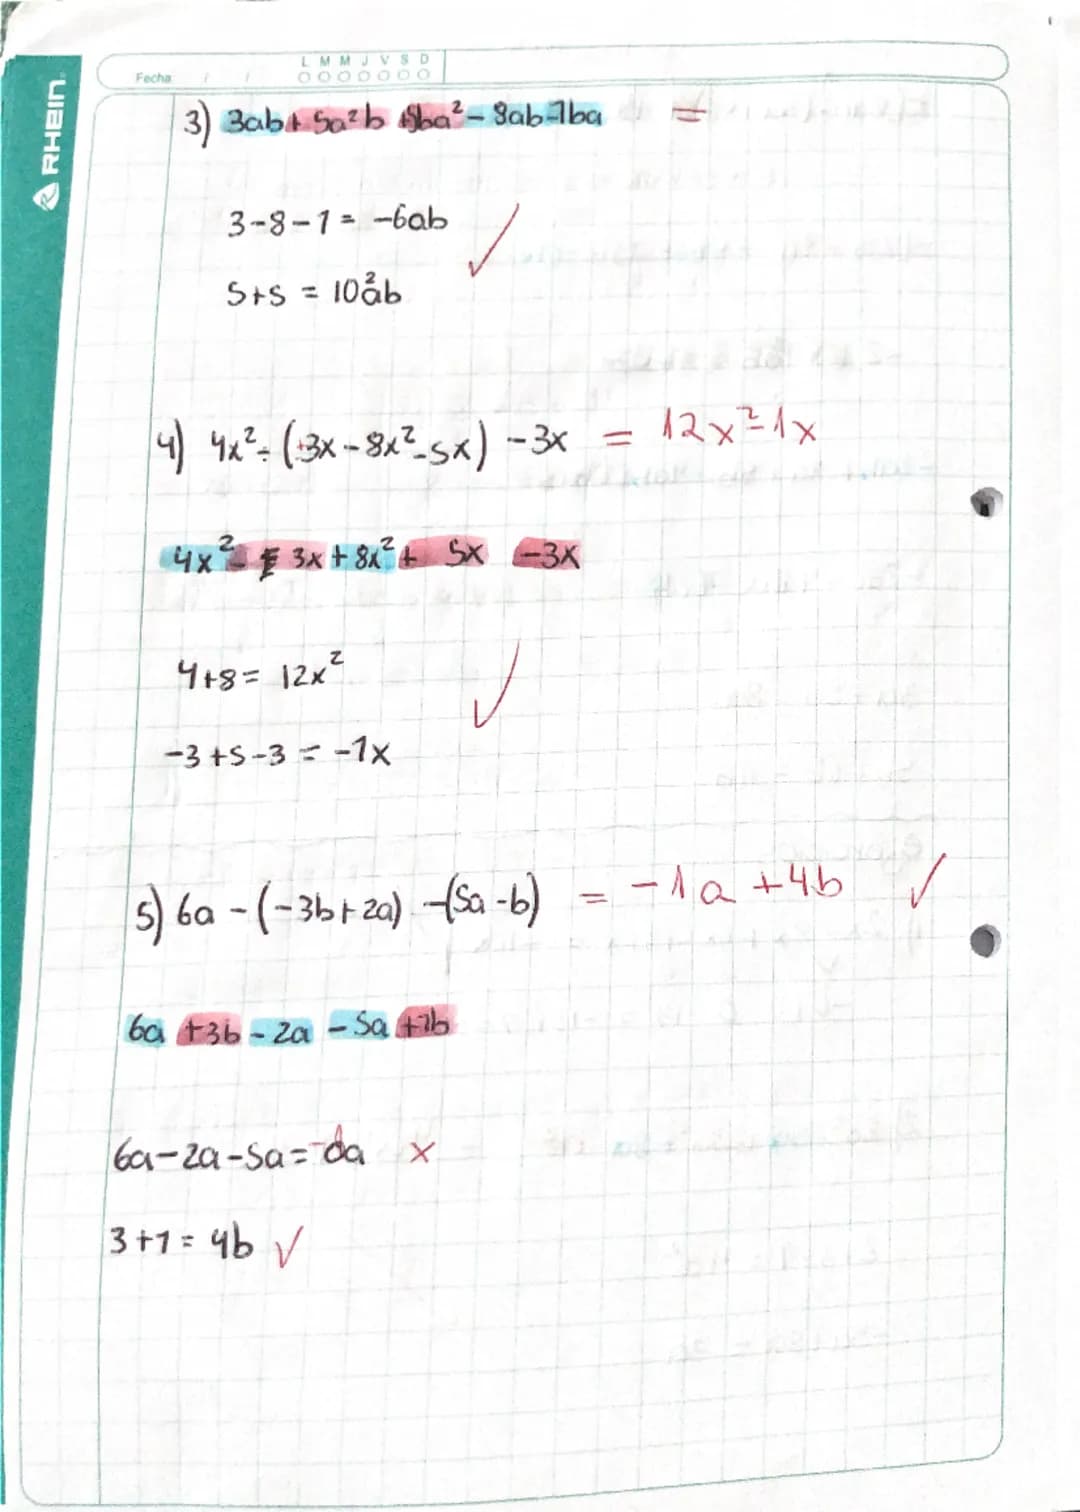 RHEIN
L M M J V S D
Fecha / /
3) 3ab + 5a²b +5ba² - 8ab - 1ba =
3-8-1 = -6ab
5+5 = 10a²b
4) 4x² - (+3x - 8x² - 5x) - 3x = 12x² - 1x
4x² - 3x + 8x² + 5x - 3x
4+8 = 12x²
-3+5-3 = -1x
5) 6a - (-3b + 2a) - (5a - b) = -1a + 4b ✓
6a +3b - 2a - 5a +1b
6a - 2a - 5a = x
3+1 = 4b ✓